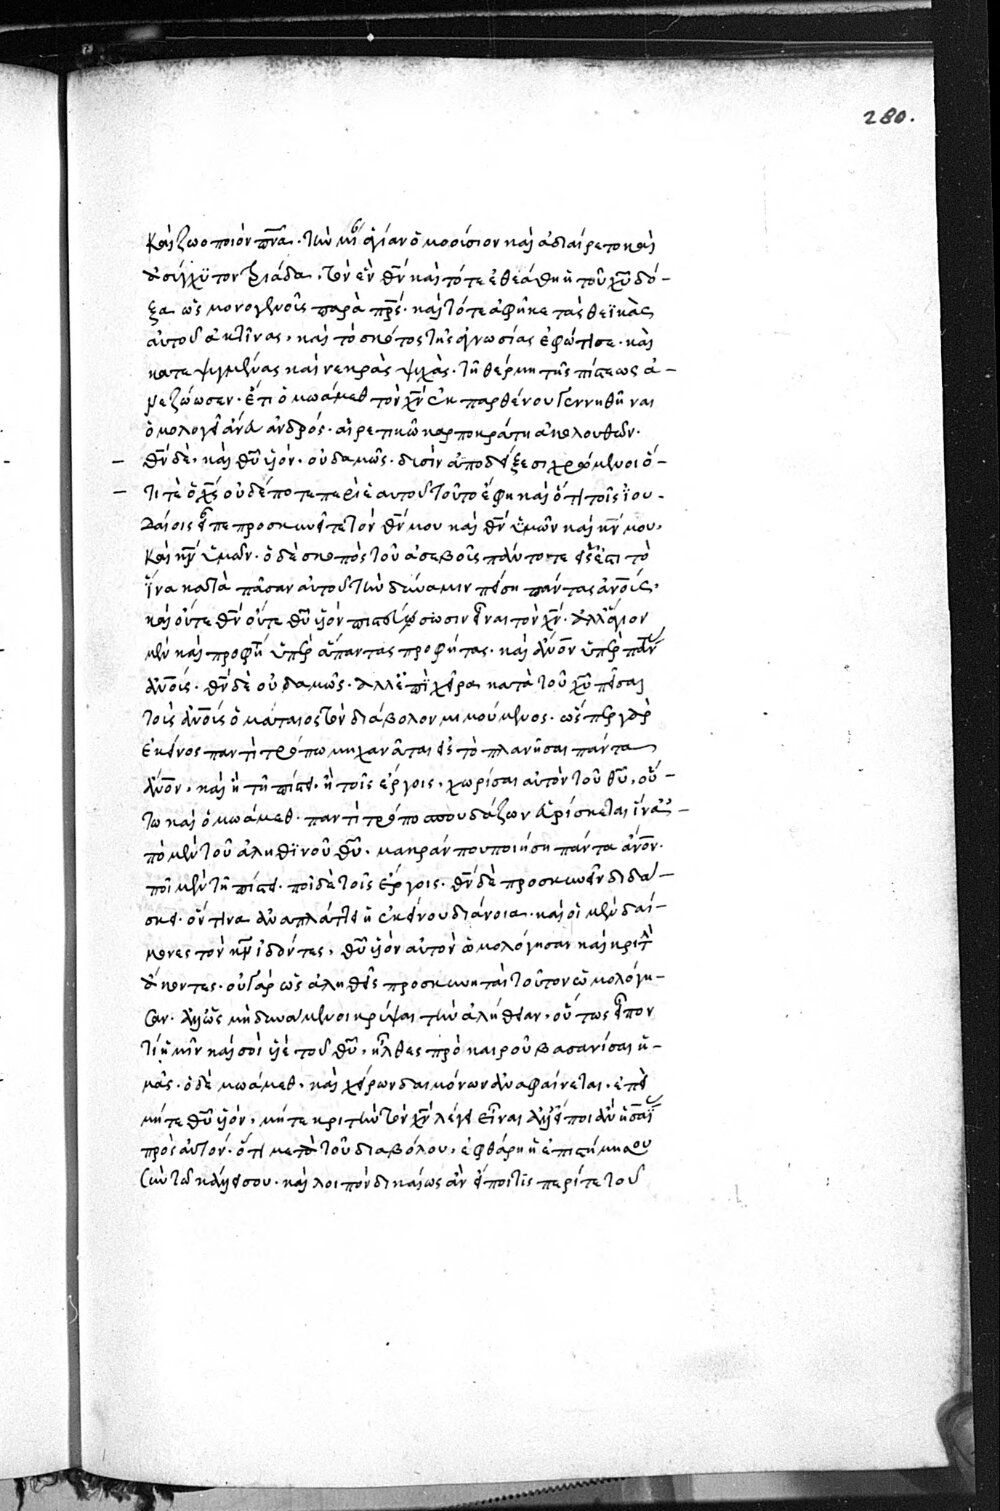 280.
καὶ ζωοποιὸν πνᾶ. τὴν μίαν ὁμοούσιον καὶ ἀδιαίρετον καὶ
ἀσύγχυτον τριάδα. τὸν ἕνα θν̄ καὶ τότε ἐθεάθη ἡ τοῦ χῡ δό-
ξα ὡς μονογενοῦς παρὰ πρς̄. καὶ τότε ἀφῆκε τὰς θεϊκὰς
αὐτοῦ ἀκτῖνας, καὶ τὸ σκότος τῆς ἀγνωσίας ἐφώτισε. καὶ
κατεψυγμένας καὶ νεκρὰς ψυχὰς. τῇ θέρμῃ τῆς πίστεως ἀ-
νεζώωσεν. ἔτι ὁ μωάμεθ τὸν χν̄ ἐκ παρθένου γεννηθῆναι
ὁμολογεῖ ἄνευ ἀνδρός. αἱρετικῶ καρποκράτη ἀκολουθῶν.
θν̄ δὲ, καὶ θῡ υἱόν. οὐδαμῶς. δυσὶν ἀποδείξεσι χρώμενοι ὅ-
τι τὲ ὁ χς̄ οὐδέποτε περὶ ἑαυτοῦ τοῦτο ἔφη καὶ ὅτι τοῖς ἰου-
δαίοις εἶπε προσκυνεῖτε τὸν θν̄ μου καὶ θν̄ ὑμῶν καὶ κν̄ μου,
καὶ κν̄ ὑμῶν. ὁ δὲ σκοπὸς τοῦ ἀσεβοῦς πάντοτε ἐξέστι τὸ
ἵνα κατὰ πᾶσαν αὐτοῦ τὴν δύναμιν πείση πάντας ἀνοῖς,
καὶ οὔτε θν̄ οὔτε θῡ υἱόν πιστεύσωσιν εἶναι τὸν χν̄. ἀλλ' ἅγιον
μὲν καὶ προφή ὑπὲρ ἅπαντας προφήτας. καὶ ἀνον ὑπὲρ πάν
ἀνοῖς. θν̄ δὲ οὐδαμῶς. ἀλλ' ἐπιχειρα κατὰ τοῦ χῡ πεῖσαι
τοὶς ἀνοῖς ὁ μάταιος τὸν διάβολον μιμούμενος. ὥσπερ γὰρ
ἐκεῖνος παντὶ τρόπω μηχανᾶται εἰς τὸ πλανῆσαι πάντα
ἄνον, καὶ ἢ τῇ πίστει ἢ τοῖς ἔργοις, χωρίσαι αὐτὸν τοῦ θῡ, οὕ-
τω καὶ ὁ μωάμεθ. παντὶ τρόπο σπουδάζων εὑρίσκεται ἵνα ἀ-
πὸ μὲν τοῦ ἀληθινοῦ θῡ. μακράν που ποιήση πάντα ἄνον.
ποῖ μὲν τῇ πίστει. ποῖ δὲ τοῖς ἔργοις. θν̄ δὲ προσκυνεῖν διδά-
σκει. ὅντινα ἀναπλάττει ἡ ἐκείνου διάνοια. καὶ οἱ μὲν δαί-
μονες τὸν κν̄ ἰδόντες, θῡ υἱὸν αὐτὸν ὡμολόγησαν καὶ κριτὴν
ἄκοντες. οὐ γὰρ ὡς ἀληθεῖς προσκυνηταὶ τοῦτον ὡμολόγη-
σαν. ἀλλ' ὡς μὴ δυνάμενοι κρύψαι τὴν ἀλήθειαν, οὕτως εἶπον
τί ἡμῖν καὶ σοὶ υἱὲ τοῦ θῡ, ἦλθες πρὸ καιροῦ βασανίσαι ἡ-
μᾶς. ὁ δὲ μωάμεθ, καὶ χείρων δαιμόνων ἀναφαίνεται. ἐπεὶ
μήτε θῡ υἱόν, μήτε κριτὴν τὸν χν̄ λέγει εἶναι
πρὸς αὐτόν. ὅτι μετὰ τοῦ διαβόλου, ἐφθάρη ἡ ἐπιστήμη σου
σὺν τῶ κάλλει σου. καὶ λοιπὸν δικαίως ἂν εἴποι τὶς περί τε τοῦ